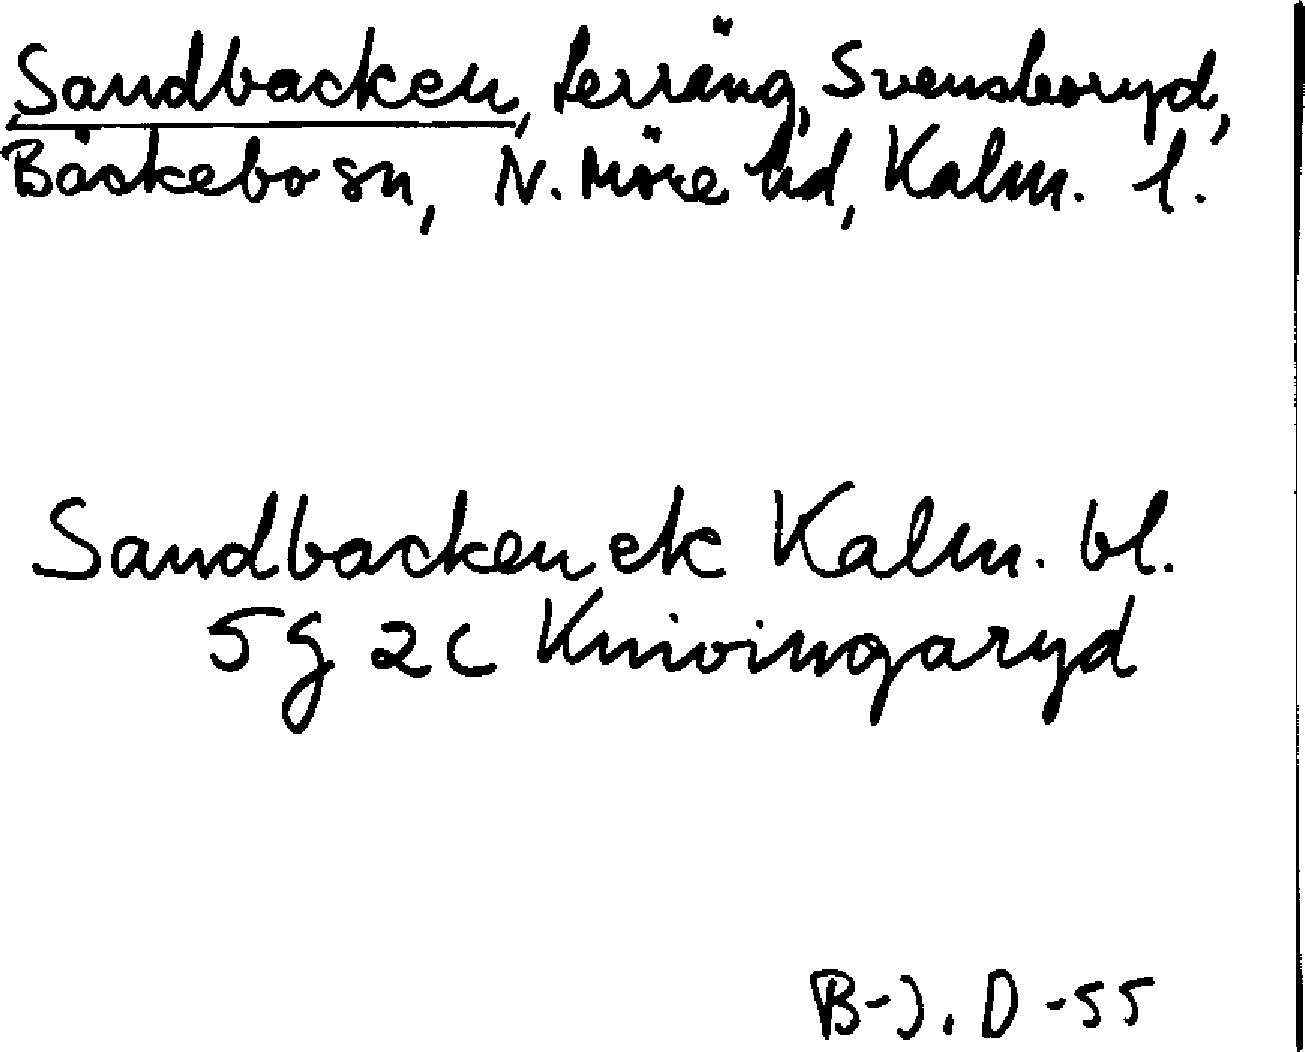 Sandbacken, terräng, Svensboryd,
Bäckebo sn, N. Möre hd, Kalm. l.
Sandbacken ek Kalm. bl.
5g 2c Knivingaryd
B-J. D -55